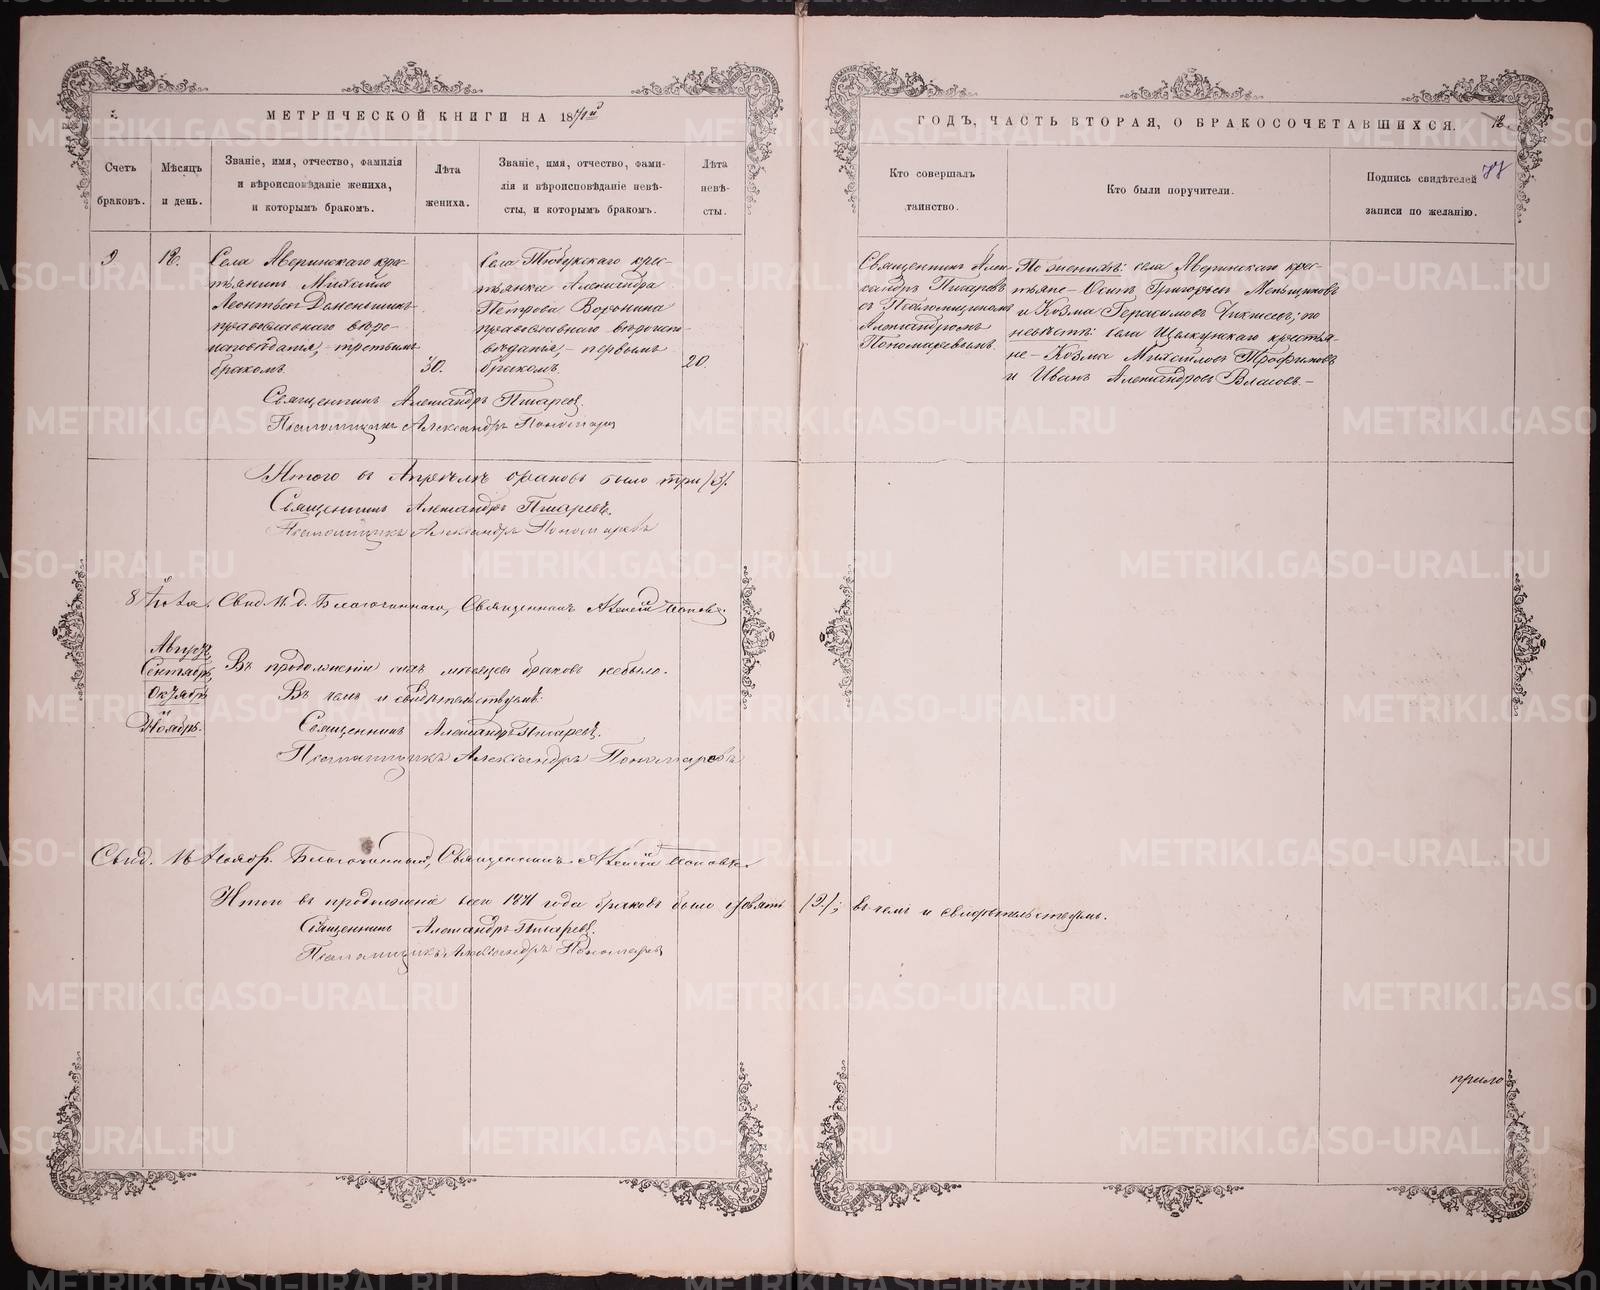 МЕТРИЧЕСКОЙ КНИГИ НА 1871й
Счетъ браковъ.
Мѣсяцъ и день.
Званіе, имя, отчество, фамилія
и вѣроисповѣданіе жениха,
и которымъ бракомъ.
Лѣта жениха.
Званіе, имя, отчество, фами-
лія и вѣроисповѣданіе невѣ-
сты, и которымъ бракомъ.
Лѣта невѣ-
сты.
9
18.
Села Аверинскаго крес-
тьянинъ Михаилъ
Леонтьевъ
православнаго вѣро-
исповѣданія, – третьимъ
бракомъ.
30.
Села Тюбукскаго крес-
тьянка Александра
Петрова Воронина
православнаго вѣроиспо-
вѣданія, – первымъ
бракомъ.
20.
Священникъ Александръ Писаревъ.
Псаломщикъ Александръ Пономаревъ
Итого въ Апрѣлѣ браковъ было три /3/.
Священникъ Александръ Писаревъ.
Псаломщикъ Александръ Пономаревъ
Благочиннаго, Священникъ Алексій Поповъ.
Августъ,
Сентябрь,
Октябрь
и
Ноябрь.
Въ продолженіи сихъ мѣсяцевъ браковъ небыло.
Въ чемъ и свидѣтельствуемъ:
Священникъ Александръ Писаревъ.
Псаломщикъ Александръ Пономаревъ
Свид. 16 Ноябр. Благочинный, Священникъ Алексій Поповъ.
Итого въ продолженіе всего 1871 года браковъ было девять /9/; въ чемъ и свидѣтельствуемъ.
Священникъ Александръ Писаревъ.
Псаломщикъ Александръ Пономаревъ
ГОДЪ, ЧАСТЬ ВТОРАЯ, О БРАКОСОЧЕТАВШИХСЯ.
18.
77
Кто совершалъ
таинство.
Кто были поручители.
Подпись свидѣтелей
записи по желанію.
Священникъ Алек-
сандръ Писаревъ
съ Псаломщикомъ
Александромъ
Пономаревымъ.
По женихѣ: села Аверинскаго крес-
тьяне – Осипъ Григорьевъ Меньщиковъ
и Козма Герасимовъ Чикишевъ; по
невѣстѣ: села Щелкунскаго крестья-
не – Козма Михайловъ Трофимовъ
и Иванъ Александровъ Власовъ. –
METRIKI.GASO-URAL.RU